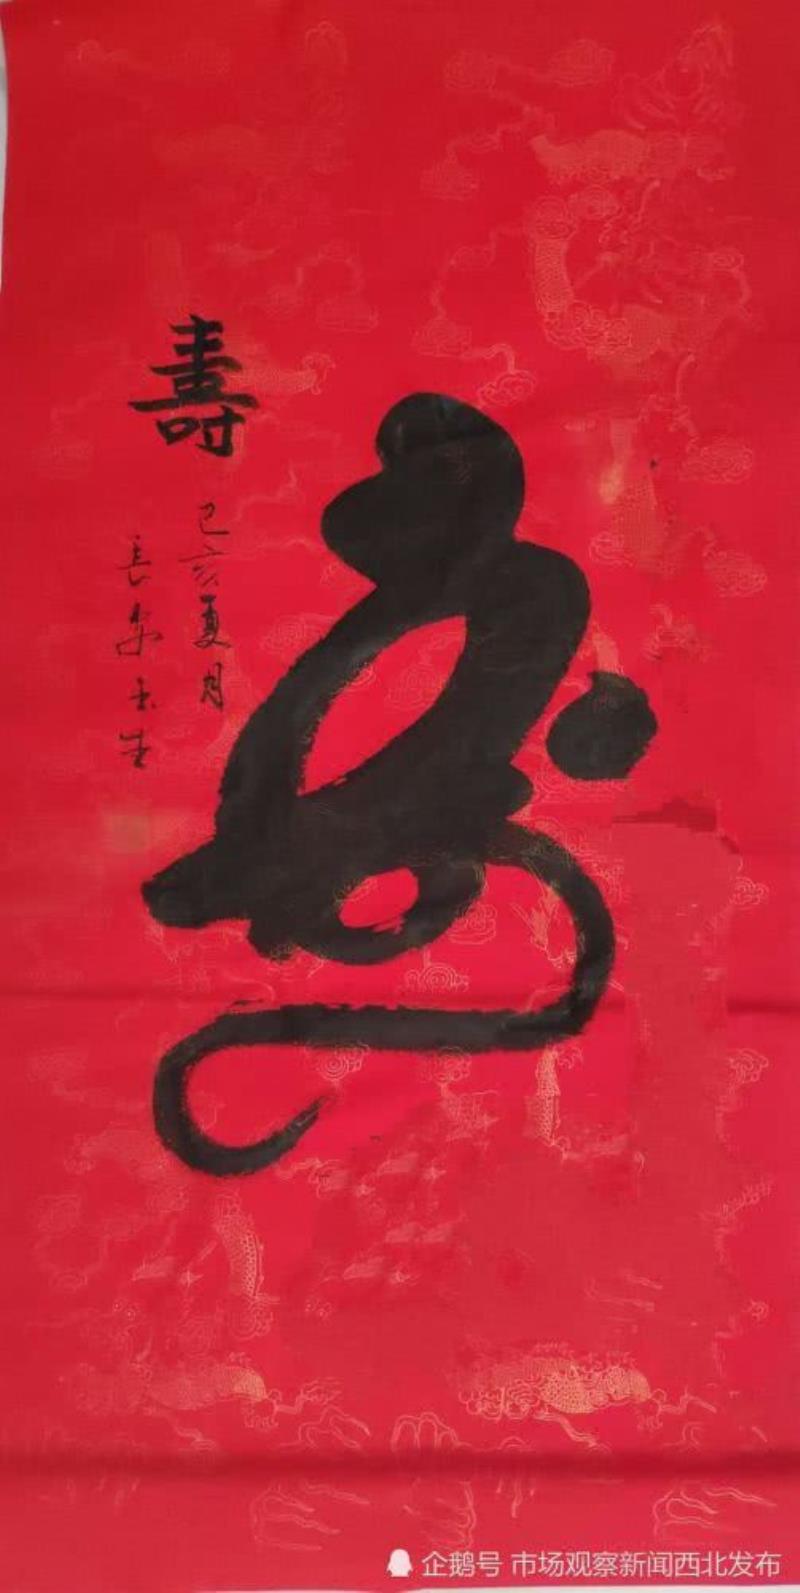 壽
己亥夏月
长安玉生
企鹅号 市场观察新闻西北发布